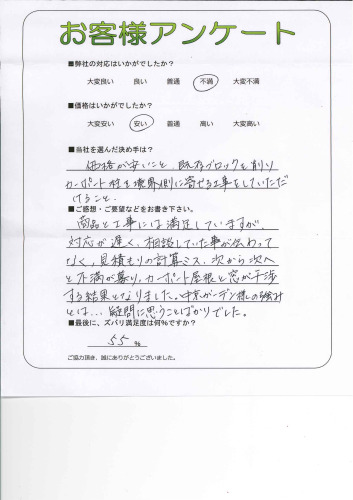 お客様アンケート
■弊社の対応はいかがでしたか?
大変良い 良い 普通 不満 大変不満
■価格はいかがでしたか?
大変安い 安い 普通 高い 大変高い
■当社を選んだ決め手は?
価格が安いこと、既存ブロックを削り
カーポート柱を境界側に寄せる工事をしていただ
けること。
■ご感想・ご要望などをお書き下さい。
商品と工事には満足していますが、
対応が遅く、相談していた事が伝わって
なく、見積もりの計算ミス、次から次へ
と不満が募り、カーポート屋根と窓が干渉
する結果となりました。中京ガーデン様の強み
とは… 疑問に思うことばかりでした。
■最後に、ズバリ満足度は何%ですか?
55 %
ご協力頂き、誠にありがとうございました。